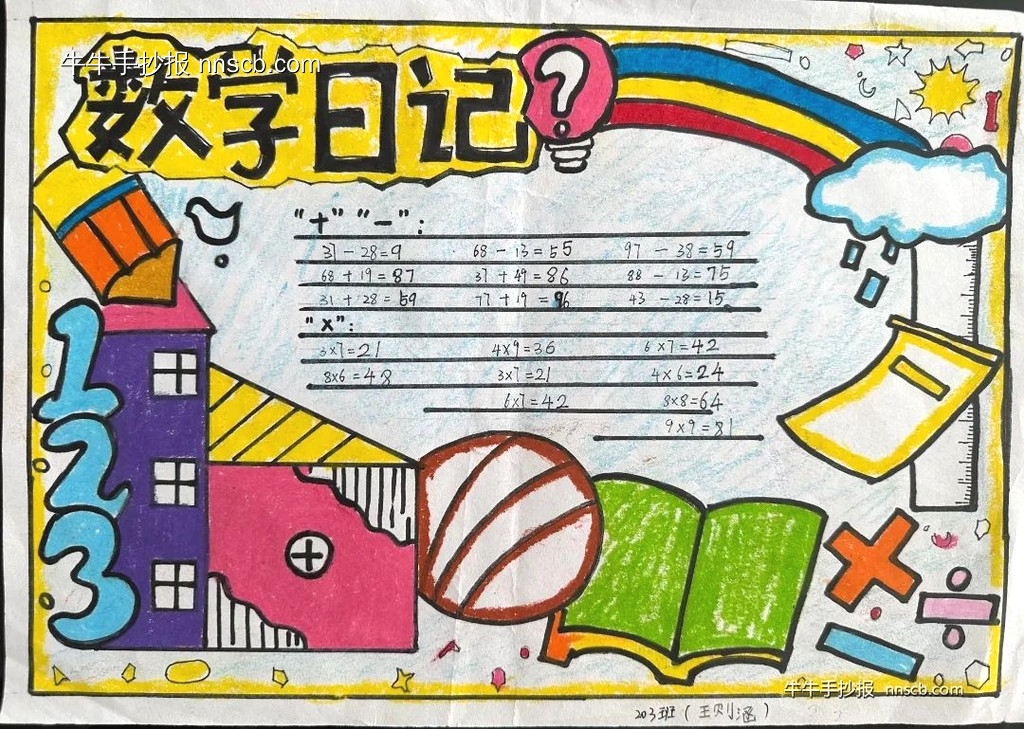 牛牛手抄报 nnscb.com
数字日记
?
"+" "-":
31-28=9 68-13=55 97-38=59
68+19=87 37+49=86 88-13=75
31+28=59 77+19=96 43-28=15
"×":
3×7=21 4×9=36 6×7=42
8×6=48 3×7=21 4×6=24
6×7=42 8×8=64
9×9=81
1
2
3
牛牛手抄报 nnscb.com
203班(王则涵)